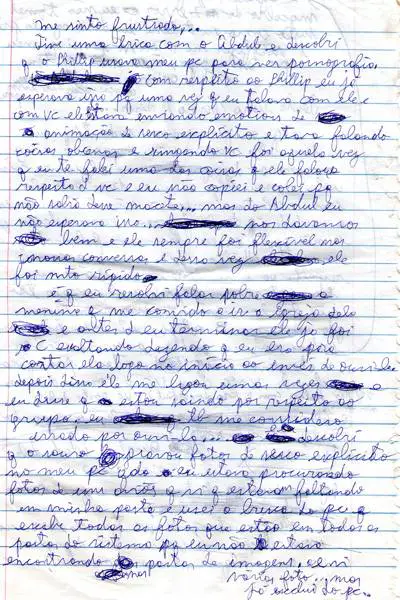 me sinto frustrado...
Tive uma briga com o Abdul e descobri
q o Phillip usava meu pc para ver pornografia.
com respeito ao Phillip eu já
esperava isso pq uma vez q eu falava com ele e
com vc ele estava enviando emotions de
animação de sexo explícito e tava falando
coisas obcenas e xingando vc foi aquela vez
q eu te falei uma das coisas q ele falava
respeito d vc e eu não copiei e colei pq
não salvo deve macete... mas do Abdul eu
não esperava isso... nos davamos
bem e ele sempre foi flexível nas
nossas conversas e dessa vez ele
foi mto rígido
é q eu resolvi falar sobre a
menina q me convido a ir a igreja dela
e antes d eu terminar ele ja foi
se exaltando dizendo q eu era para
contar ela logo no início ao invés de
depois disso ele me ligou umas vezes e
eu disse q estou saindo por respeito ao
grupo, eu me considero
errado por ouvi-la... descobri
q o fotos de sexo explícito
no meu pc qdo eu estava procurando
fotos de uma q vi q estavam faltando
em minha pasta e usei a busca do pc q
exibe todas as fotos que estão em todas as
pastas do sistema pq eu não estava
encontrando pastas de imagens, e vi
varias foto... mas
já exclui do pc..